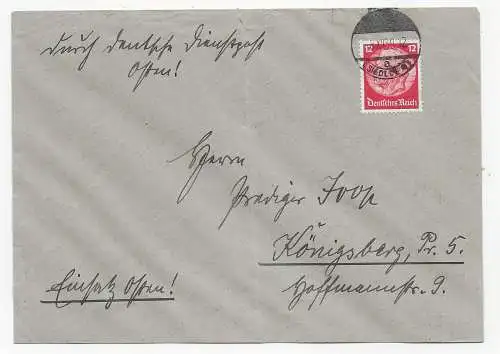 durch deutsche Dienstpost
Osten!
12 12
a
SIEDLCE
Deutsches Reich
Herrn
Prediger Joop
Königsberg, Pr. 5.
Einsatz Osten!
Hoffmannstr. 9.